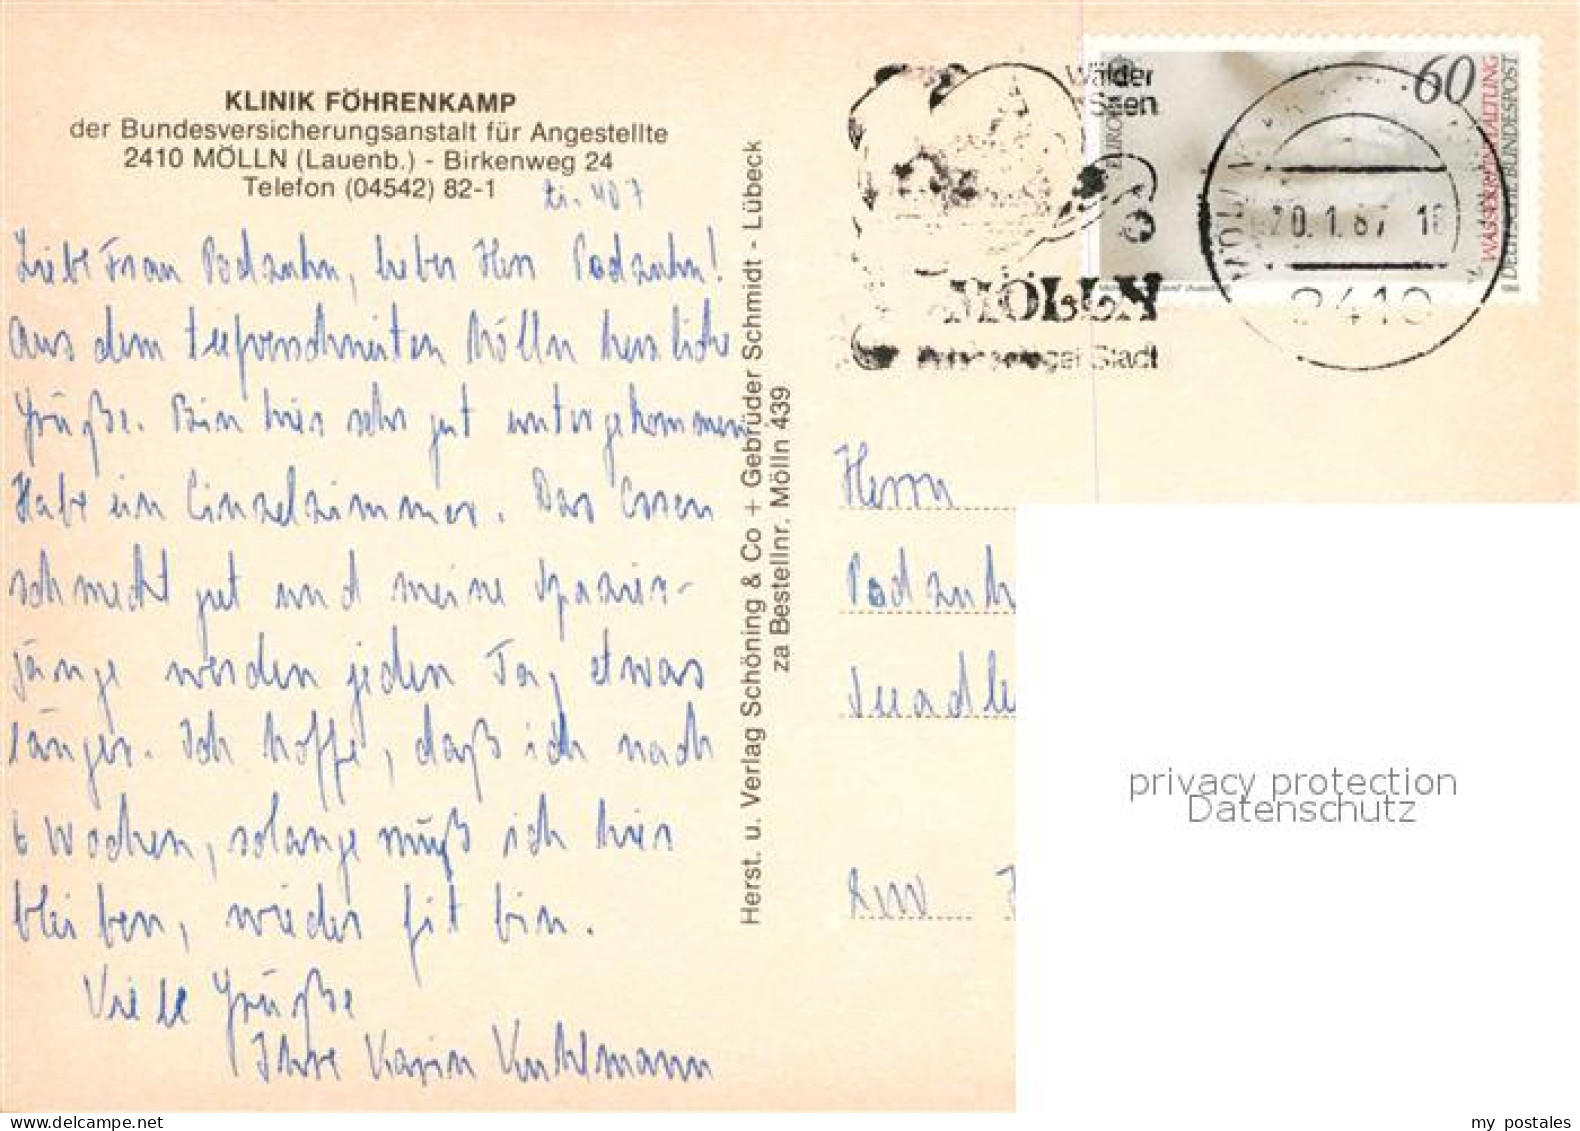 KLINIK FÖHRENKAMP
der Bundesversicherungsanstalt für Angestellte
2410 MÖLLN (Lauenb.) - Birkenweg 24
Telefon (04542) 82-1
Zi. 407
Liebe Frau Podzuhn, lieber Herr Podzuhn!
Aus dem tiefverschneiten Mölln herzliche
Grüße. Bin hier sehr gut untergekommen
Habe ein Einzelzimmer. Das Essen
schmeckt gut und meine Spazier-
gänge werden jeden Tag etwas
länger. Ich hoffe, daß ich nach
6 Wochen, solange muß ich hier
bleiben, wieder fit bin.
Viele Grüße
Ihre Karin Kuhlmann
Herst. u. Verlag Schöning & Co + Gebrüder Schmidt - Lübeck
za Bestellnr. Mölln 439
Wälder
Seen
MÖLLN
Stadt
60
EUROPA
WASSERREINHALTUNG
DEUTSCHE BUNDESPOST
MÖLLN
20.1.87
2410
Herrn
Podzuh
privacy protection
Datenschutz
my postales